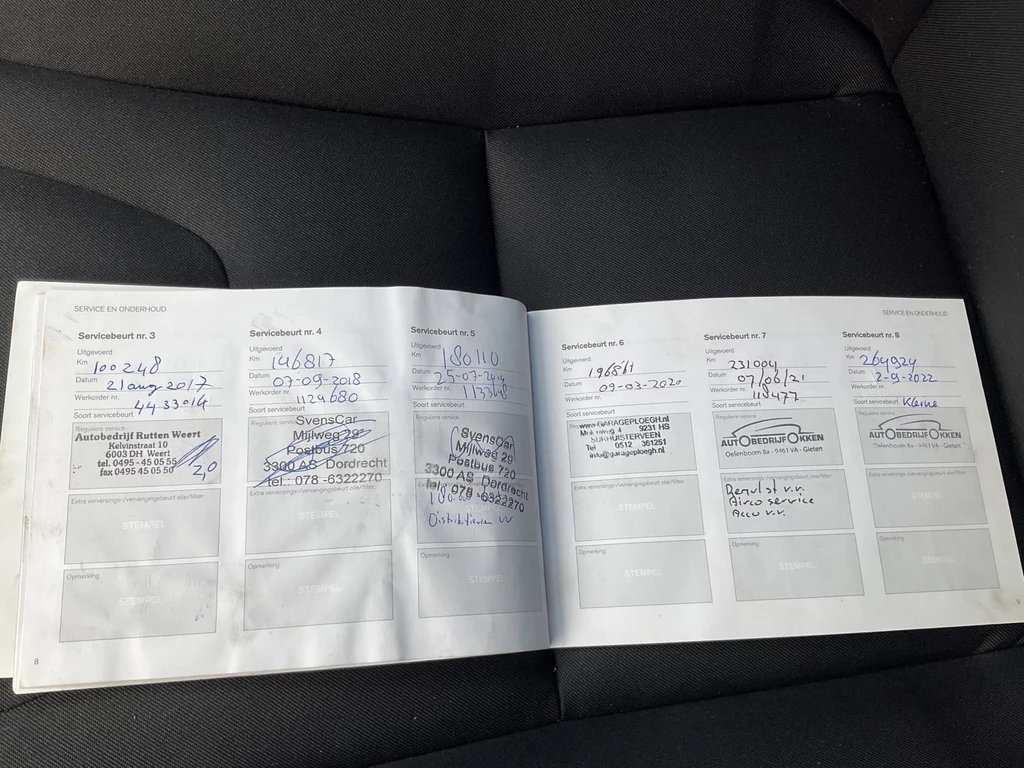 SERVICE EN ONDERHOUD
Servicebeurt nr. 3
Uitgevoerd
Km 100248
Datum 21 aug 2017
Werkorder nr. 4433014
Soort servicebeurt
Reguliere service
Autobedrijf Rutten Weert
Kelvinstraat 10
6003 DH Weert
tel. 0495 - 45 05 55
fax 0495 45 05 50
Extra verversings-/vervangingsbeurt olie/filter:
STEMPEL
Opmerking
STEMPEL
8
Servicebeurt nr. 4
Uitgevoerd
Km 146817
Datum 07-09-2018
Werkorder nr. 1129680
Soort servicebeurt
Reguliere service
SvensCar
Mijlweg 29
Postbus 720
3300 AS Dordrecht
tel.: 078 -6322270
Extra verversings-/vervangingsbeurt olie/filter:
STEMPEL
Opmerking
STEMPEL
Servicebeurt nr. 5
Uitgevoerd
Km 180110
Datum 25-07-2019
Werkorder nr.
Soort servicebeurt
Reguliere service
SvensCar
Mijlweg 29
Postbus 720
3300 AS Dordrecht
tel.: 078 -6322270
Opmerking
STEMPEL
SERVICE EN ONDERHOUD
Servicebeurt nr. 6
Uitgevoerd
Km
Datum 09-03-2020
Werkorder nr.
Soort servicebeurt
www.GARAGEPLOEGH.nl
9231 HS
SURHUISTERVEEN
Tel 0512 361251
info@garageploegh.nl
Extra verversings-/vervangingsbeurt olie/filter:
STEMPEL
Opmerking
STEMPEL
Servicebeurt nr. 7
Uitgevoerd
Km 231004
Datum 07/06/21
Werkorder nr. 118477
Soort servicebeurt
Reguliere service
AUTOBEDRIJF OKKEN
Oelenboom 8a - 9461 VA - Gieten
Extra verversings-/vervangingsbeurt olie/filter:
Remvlst v.v.
Airco service
Accu v.v.
Opmerking
STEMPEL
Servicebeurt nr. 8
Uitgevoerd
Km 264924
Datum 2-9-2022
Werkorder nr.
Soort servicebeurt Kleine
Reguliere service
AUTOBEDRIJF OKKEN
Oelenboom 8a - 9461 VA - Gieten
Extra verversings-/vervangingsbeurt olie/filter:
STEMPEL
Opmerking
STEMPEL
9